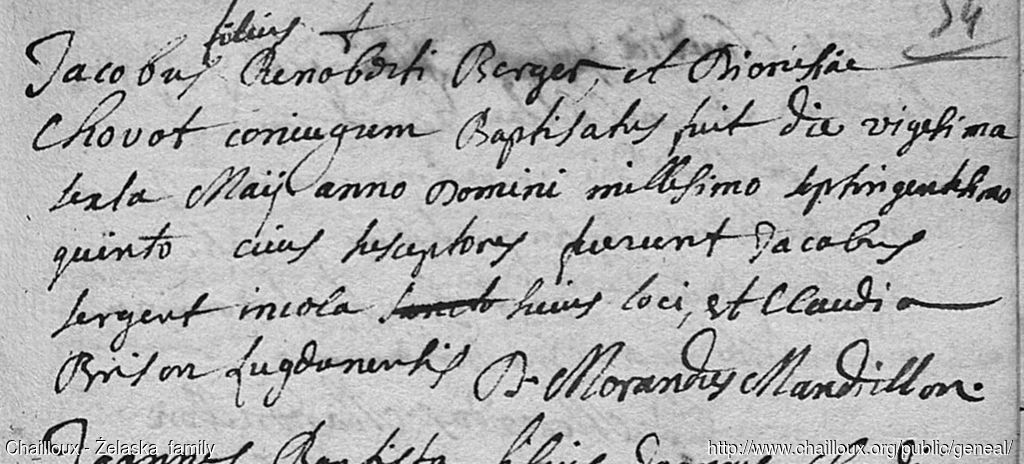 34
filius
Jacobus Renoberti Berger, et Dionisiae
Chovot coniugum Baptisatus fuit die vigesima
sexta Maij anno Domini millesimo septingentesimo
quinto cuius susceptores fuerunt Jacobus
sergent incola sancto huius loci, et Claudia
Brison Lugdunensis D. Morandus Mandillon.
Joannes Baptista filius
Chailloux - Želaska family
http://www.chailloux.org/public/geneal/